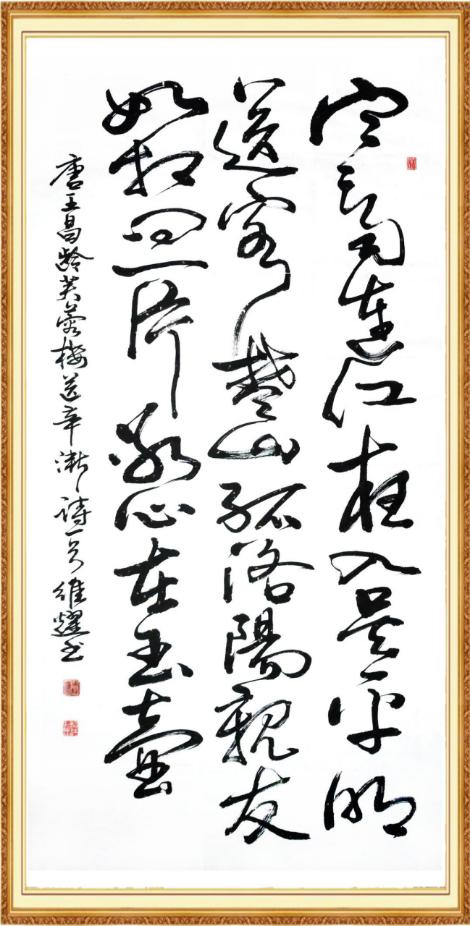 寒雨連江夜入吴平明
送客楚山孤洛陽親友
如相问一片冰心在玉壺
唐王昌龄芙蓉楼送辛漸詩一首 維耀书